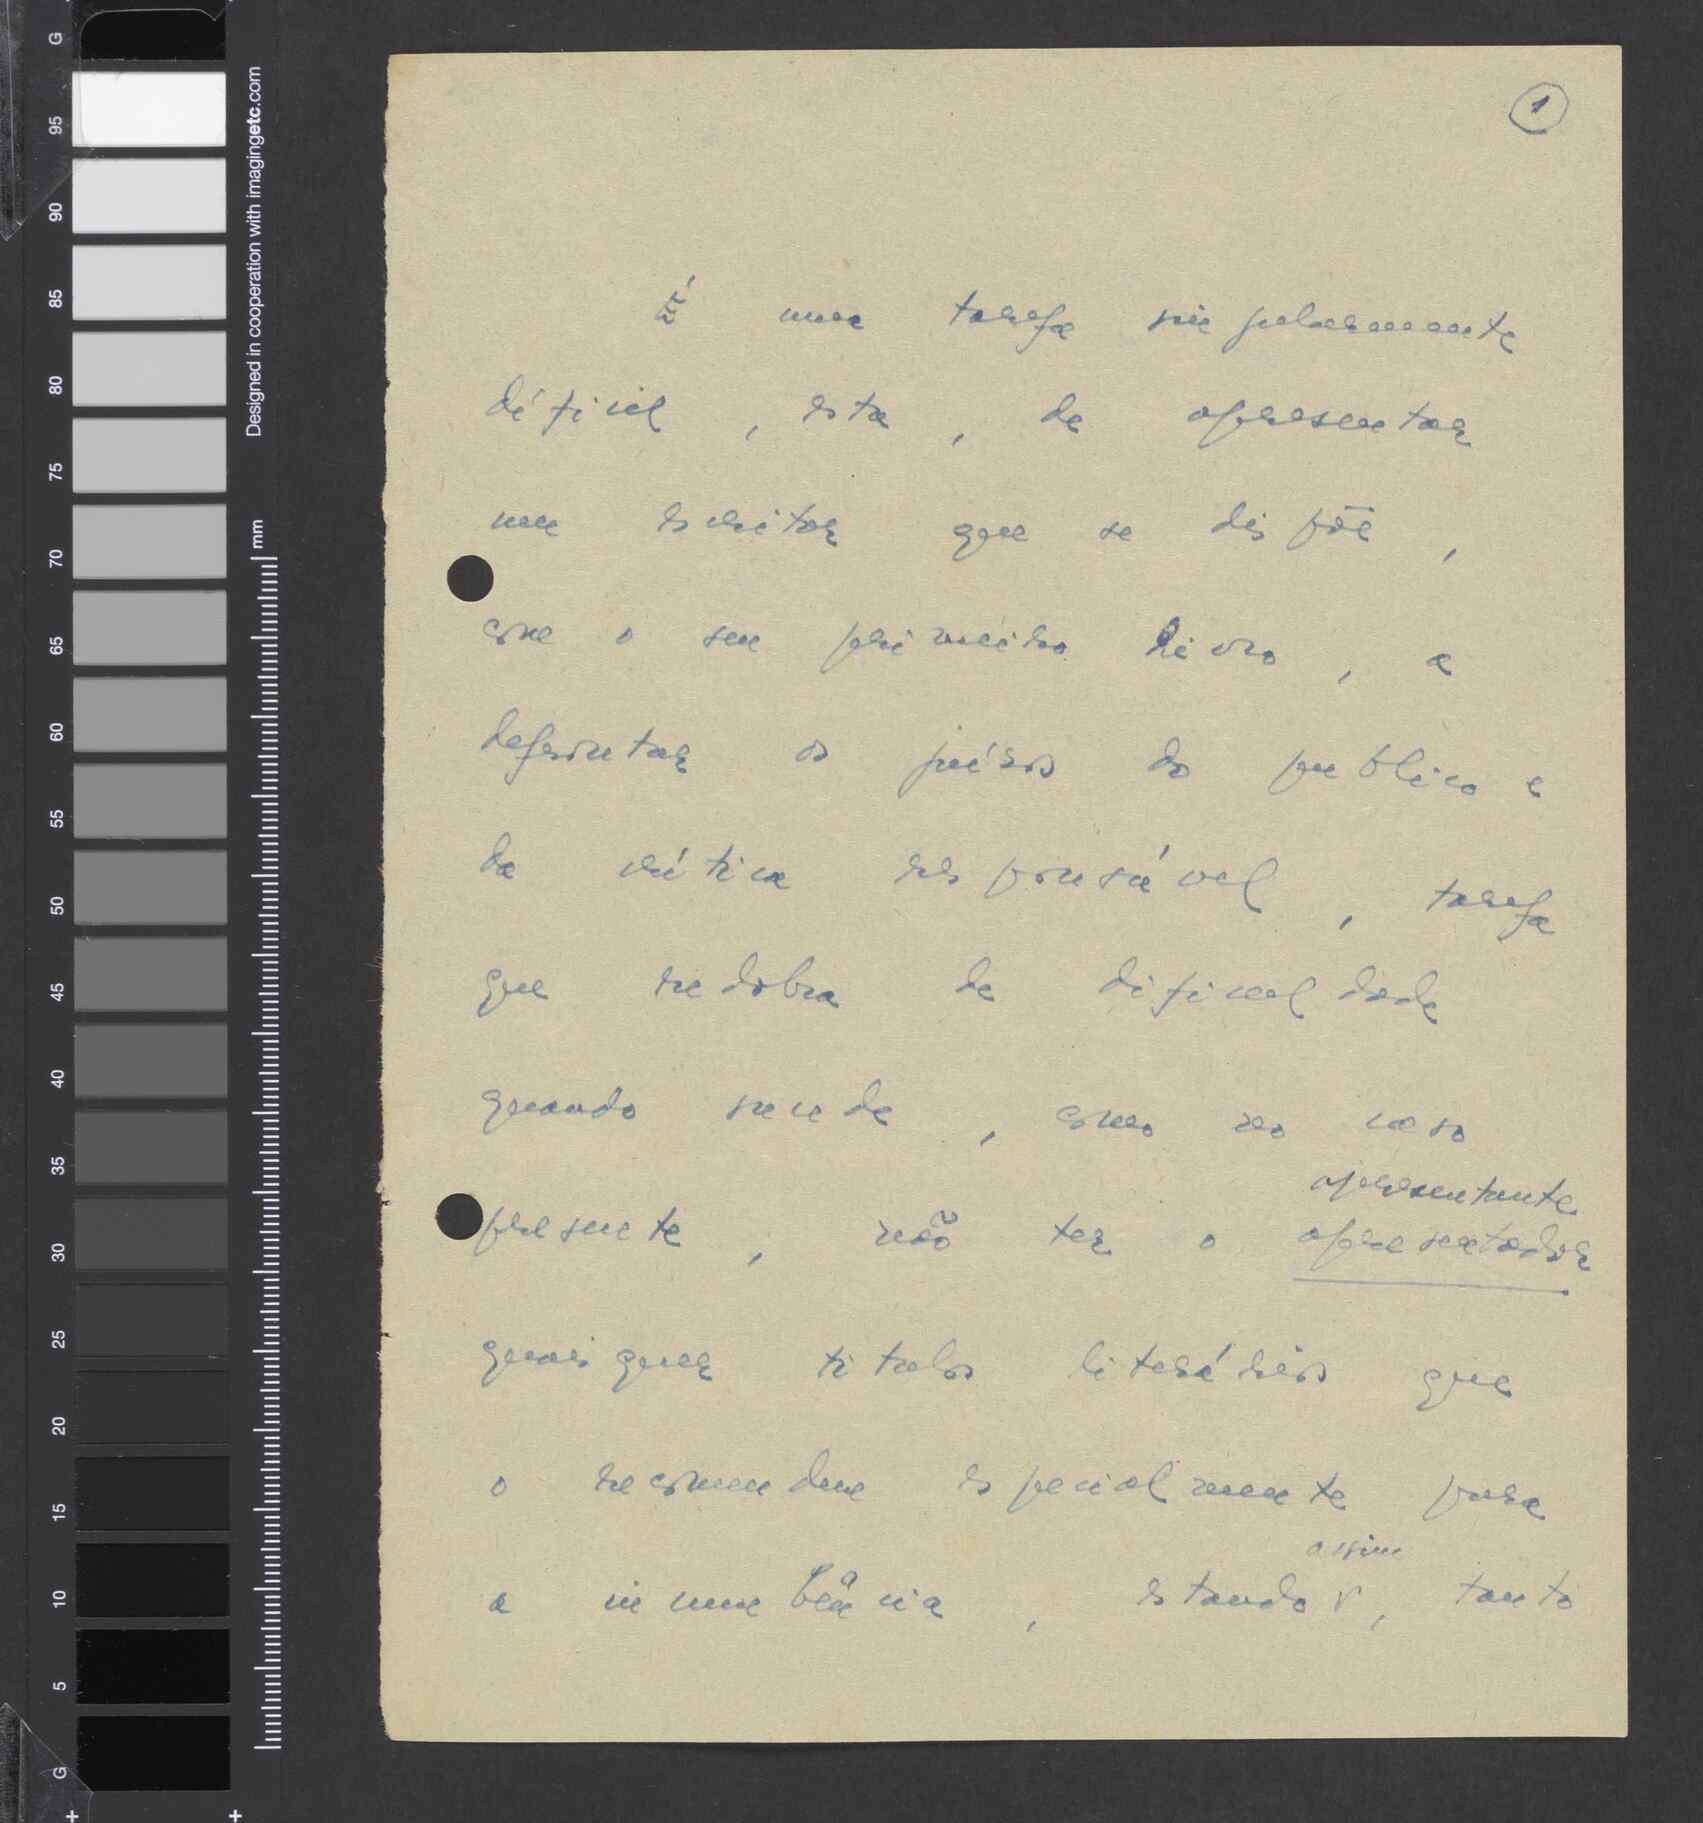 1
É uma tarefa singularmente
difícil, esta, de apresentar
um escritor que se dispõe,
com o seu primeiro livro, a
defrontar os juízos do publico e
da crítica responsável, tarefa
que redobra de dificuldade
quando sucede, como no caso
apresentante
presente, não ter o apresentador
quaisquer titulos literários que
o recomendem especialmente para
assim
a incumbência, estando, tanto
G
95
90
85
80
75
70
65
60
55
50
45
40
35
30
25
20
15
10
5
G
Designed in cooperation with imagingetc.com
mm